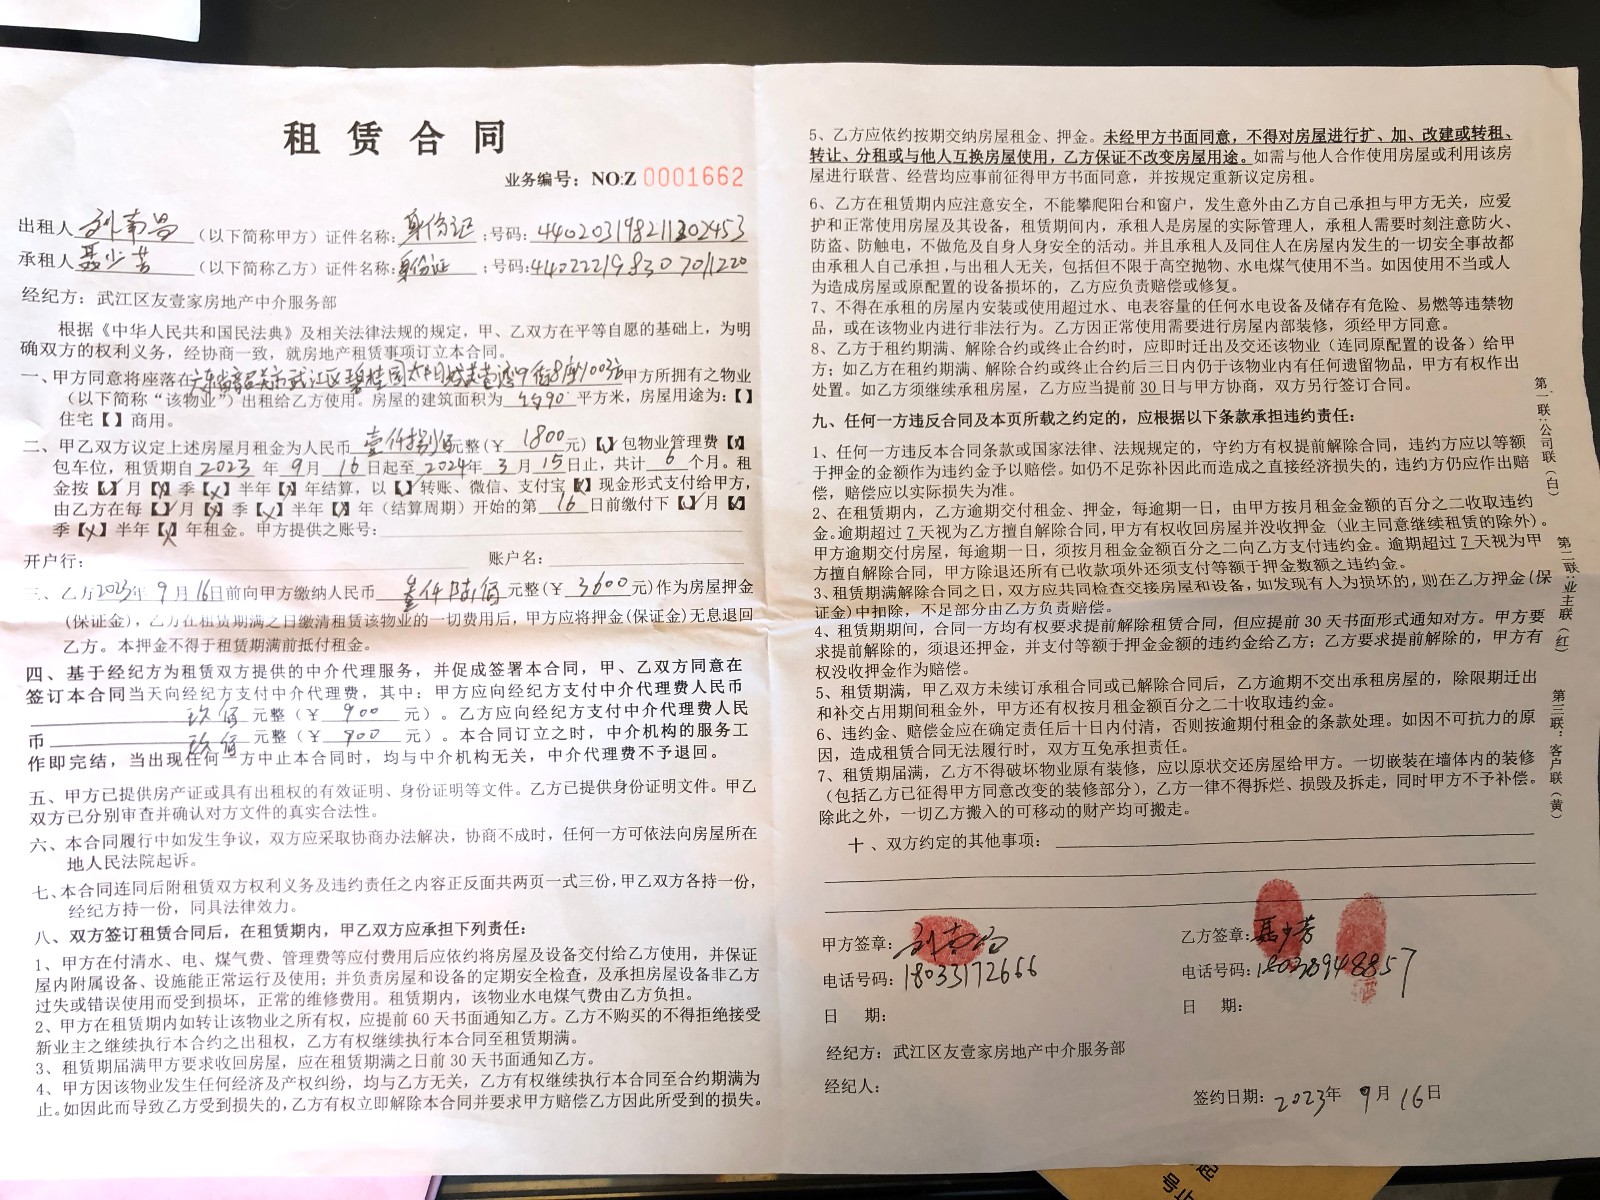 租 赁 合 同
业务编号： NO:Z 0001662
出租人 刘南昌 （以下简称甲方）证件名称: 身份证 ;号码: 440203198211302453
承租人 聂少芳 （以下简称乙方）证件名称: 身份证 ;号码:
经纪方：武江区友壹家房地产中介服务部
根据《中华人民共和国民法典》及相关法律法规的规定，甲、乙双方在平等自愿的基础上，为明
确双方的权利义务，经协商一致，就房地产租赁事项订立本合同。
一、甲方同意将座落在广东省韶关市武江区碧桂园太阳城 甲方所拥有之物业
（以下简称“该物业”）出租给乙方使用。房屋的建筑面积为 约90 平方米，房屋用途为：【】
住宅【】商用。
二、甲乙双方议定上述房屋月租金为人民币 壹仟捌佰 元整（¥ 1800 元）【✓】包物业管理费【×】
包车位，租赁期自 2023 年 9 月 16 日起至 2024 年 3 月 15 日止，共计 6 个月。租
金按【✓】月【×】季【×】半年【】年结算，以【✓】转账、微信、支付宝【×】现金形式支付给甲方，
由乙方在每【✓】月【×】季【×】半年【×】年（结算周期）开始的第 16 日前缴付下【✓】月【×】
季【×】半年【×】年租金。甲方提供之账号：
开户行： 账户名：
三、乙方2023年 9月16日前向甲方缴纳人民币 叁仟陆佰 元整（¥ 3600 元）作为房屋押金
（保证金），乙方在租赁期满之日缴清租赁该物业的一切费用后，甲方应将押金(保证金)无息退回
乙方。本押金不得于租赁期满前抵付租金。
四、基于经纪方为租赁双方提供的中介代理服务，并促成签署本合同，甲、乙双方同意在
签订本合同当天向经纪方支付中介代理费，其中：甲方应向经纪方支付中介代理费人民币
玖佰 元整（¥ 900 元）。乙方应向经纪方支付中介代理费人民
币 玖佰 元整（¥ 900 元）。本合同订立之时，中介机构的服务工
作即完结，当出现任何一方中止本合同时，均与中介机构无关，中介代理费不予退回。
五、甲方已提供房产证或具有出租权的有效证明、身份证明等文件。乙方已提供身份证明文件。甲乙
双方已分别审查并确认对方文件的真实合法性。
六、本合同履行中如发生争议，双方应采取协商办法解决，协商不成时，任何一方可依法向房屋所在
地人民法院起诉。
七、本合同连同后附租赁双方权利义务及违约责任之内容正反面共两页一式三份，甲乙双方各持一份，
经纪方持一份，同具法律效力。
八、双方签订租赁合同后，在租赁期内，甲乙双方应承担下列责任：
1、甲方在付清水、电、煤气费、管理费等应付费用后应依约将房屋及设备交付给乙方使用，并保证
屋内附属设备、设施能正常运行及使用；并负责房屋和设备的定期安全检查，及承担房屋设备非乙方
过失或错误使用而受到损坏，正常的维修费用。租赁期内，该物业水电煤气费由乙方负担。
2、甲方在租赁期内如转让该物业之所有权，应提前 60 天书面通知乙方。乙方不购买的不得拒绝接受
新业主之继续执行本合约之出租权，乙方有权继续执行本合同至租赁期满。
3、租赁期届满甲方要求收回房屋，应在租赁期满之日前 30 天书面通知乙方。
4、甲方因该物业发生任何经济及产权纠纷，均与乙方无关，乙方有权继续执行本合同至合约期满为
止。如因此而导致乙方受到损失的，乙方有权立即解除本合同并要求甲方赔偿乙方因此所受到的损失。
5、乙方应依约按期交纳房屋租金、押金。未经甲方书面同意，不得对房屋进行扩、加、改建或转租、
转让、分租或与他人互换房屋使用，乙方保证不改变房屋用途。如需与他人合作使用房屋或利用该房
屋进行联营、经营均应事前征得甲方书面同意，并按规定重新议定房租。
6、乙方在租赁期内应注意安全，不能攀爬阳台和窗户，发生意外由乙方自己承担与甲方无关，应爱
护和正常使用房屋及其设备，租赁期间内，承租人是房屋的实际管理人，承租人需要时刻注意防火、
防盗、防触电，不做危及自身人身安全的活动。并且承租人及同住人在房屋内发生的一切安全事故都
由承租人自己承担,与出租人无关，包括但不限于高空抛物、水电煤气使用不当。如因使用不当或人
为造成房屋或原配置的设备损坏的，乙方应负责赔偿或修复。
7、不得在承租的房屋内安装或使用超过水、电表容量的任何水电设备及储存有危险、易燃等违禁物
品，或在该物业内进行非法行为。乙方因正常使用需要进行房屋内部装修，须经甲方同意。
8、乙方于租约期满、解除合约或终止合约时，应即时迁出及交还该物业（连同原配置的设备）给甲
方；如乙方在租约期满、解除合约或终止合约后三日内仍于该物业内有任何遗留物品，甲方有权作出
处置。如乙方须继续承租房屋，乙方应当提前 30 日与甲方协商，双方另行签订合同。
九、任何一方违反合同及本页所载之约定的，应根据以下条款承担违约责任：
1、任何一方违反本合同条款或国家法律、法规规定的，守约方有权提前解除合同，违约方应以等额
于押金的金额作为违约金予以赔偿。如仍不足弥补因此而造成之直接经济损失的，违约方仍应作出赔
偿，赔偿应以实际损失为准。
2、在租赁期内，乙方逾期交付租金、押金，每逾期一日，由甲方按月租金金额的百分之二收取违约
金。逾期超过 7 天视为乙方擅自解除合同，甲方有权收回房屋并没收押金（业主同意继续租赁的除外）。
甲方逾期交付房屋，每逾期一日，须按月租金金额百分之二向乙方支付违约金。逾期超过 7 天视为甲
方擅自解除合同，甲方除退还所有已收款项外还须支付等额于押金数额之违约金。
3、租赁期满解除合同之日，双方应共同检查交接房屋和设备，如发现有人为损坏的，则在乙方押金(保
证金)中扣除，不足部分由乙方负责赔偿。
4、租赁期期间，合同一方均有权要求提前解除租赁合同，但应提前 30 天书面形式通知对方。甲方要
求提前解除的，须退还押金，并支付等额于押金金额的违约金给乙方；乙方要求提前解除的，甲方有
权没收押金作为赔偿。
5、租赁期满，甲乙双方未续订承租合同或已解除合同后，乙方逾期不交出承租房屋的，除限期迁出
和补交占用期间租金外，甲方还有权按月租金额百分之二十收取违约金。
6、违约金、赔偿金应在确定责任后十日内付清，否则按逾期付租金的条款处理。如因不可抗力的原
因，造成租赁合同无法履行时，双方互免承担责任。
7、租赁期届满，乙方不得破坏物业原有装修，应以原状交还房屋给甲方。一切嵌装在墙体内的装修
（包括乙方已征得甲方同意改变的装修部分），乙方一律不得拆烂、损毁及拆走，同时甲方不予补偿。
除此之外，一切乙方搬入的可移动的财产均可搬走。
十 、双方约定的其他事项：
甲方签章： 刘南昌
乙方签章: 聂少芳
电话号码: 18033172666
电话号码:
日 期：
日 期：
经纪方：武江区友壹家房地产中介服务部
经纪人：
签约日期： 2023年 9月 16日
第一联：公司联（白）
第二联：业主联（红）
第三联：客户联（黄）